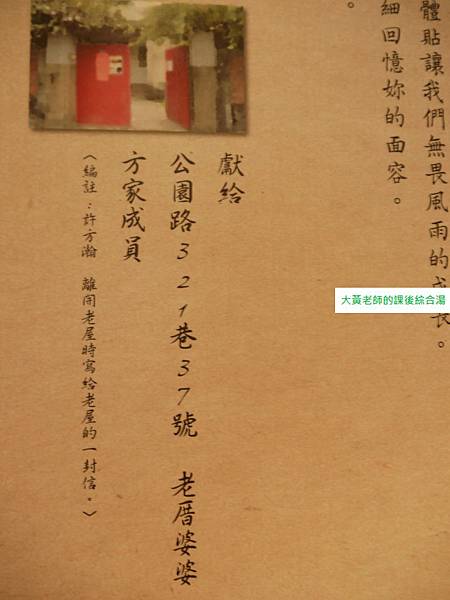 體貼讓我們無畏風雨的成長。
細回憶妳的面容。
。
獻給
公園路321巷37號 老厝婆婆
方家成員
〈編註：許方瀚 離開老屋時寫給老屋的一封信。〉
大黃老師的課後綜合湯